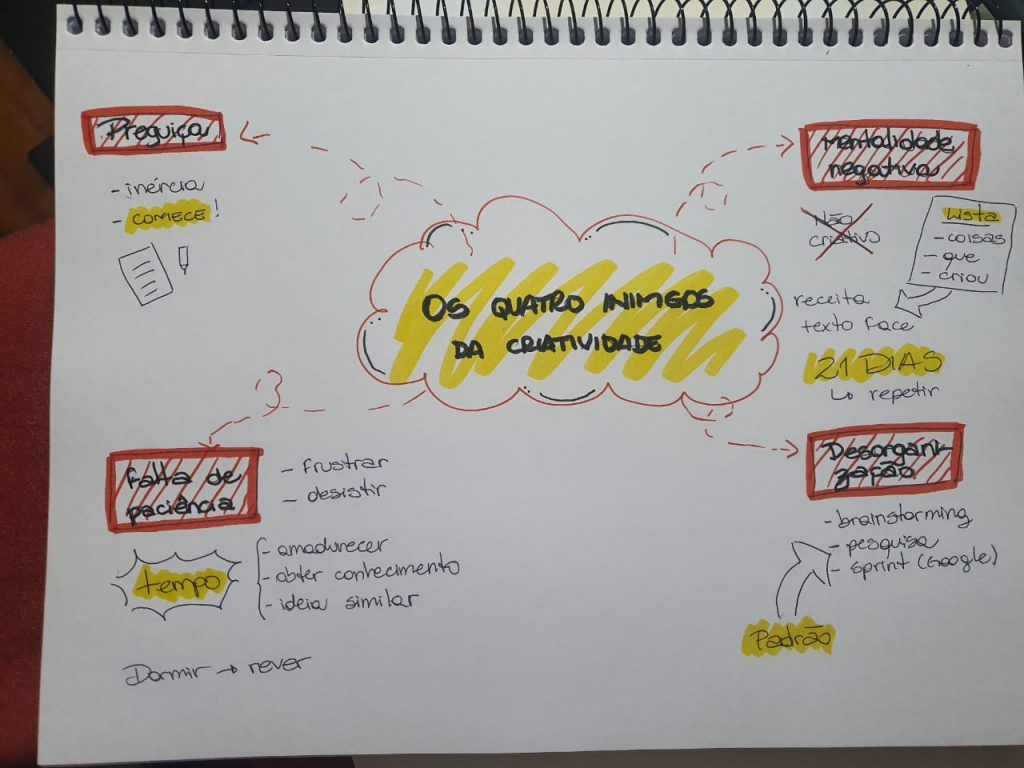 OS QUATRO INIMIGOS
DA CRIATIVIDADE
Preguiça
- inércia
- COMECE!
Mentalidade
negativa
Não
criativo
Lista
- coisas
- que
- criou
receita
texto face
21 DIAS
↳ repetir
Falta de
paciência
- frustrar
- desistir
tempo
- amadurecer
- obter conhecimento
- ideia similar
Dormir → rever
Desorgani-
zação
- brainstorming
- pesquisa
- sprint (Google)
Padrão